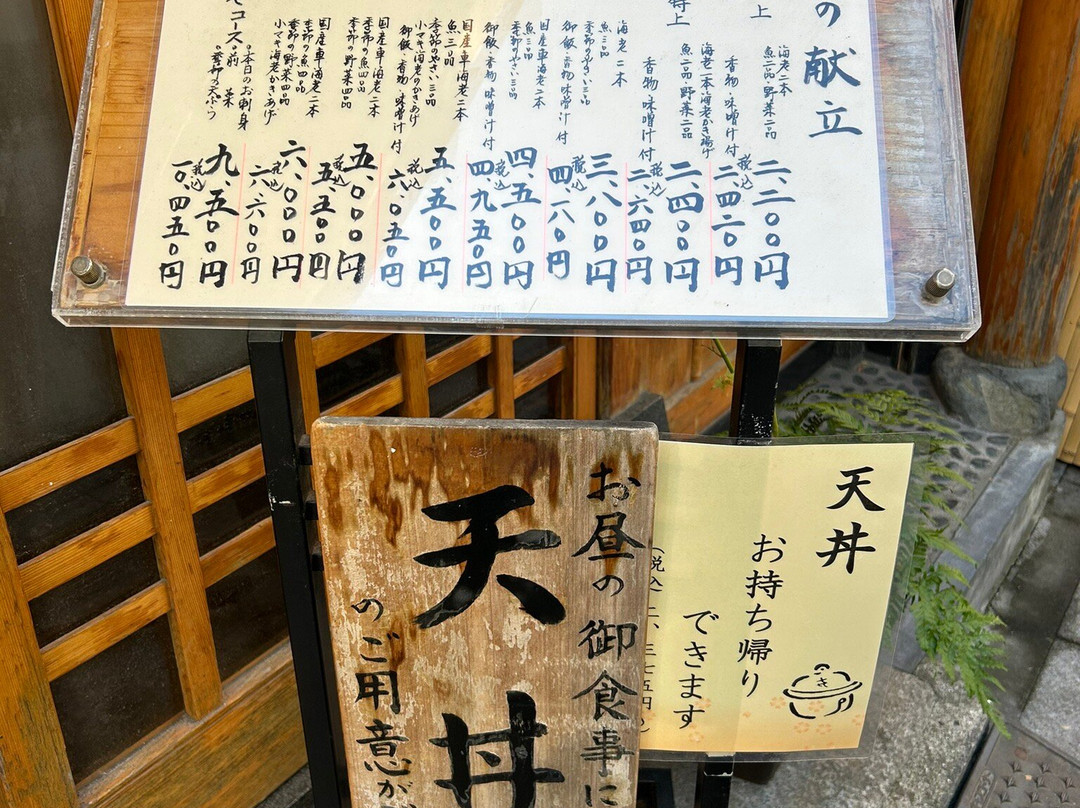 の献立
上
海老二本
魚二品・野菜二品
香物・味噌汁付
二、二〇〇円
税込
二、四二〇円
特上
海老一本・海老かき揚げ
魚二品・野菜二品
香物・味噌汁付
二、四〇〇円
税込
二、六四〇円
海老二本
魚三品
季節のやさい三品
御飯・香物・味噌汁付
三、八〇〇円
税込
四、一八〇円
国産車海老二本
魚三品
季節のやさい三品
御飯・香物・味噌汁付
四、五〇〇円
税込
四、九五〇円
国産車海老二本
魚三品
季節のやさい三品
小マキ海老のかきあげ
御飯・香物・味噌汁付
五、五〇〇円
税込
六、〇五〇円
国産車海老二本
季節の魚四品
季節の野菜四品
五、〇〇〇円
税込
五、五〇〇円
国産車海老二本
季節の魚四品
季節の野菜四品
小マキ海老かきあげ
六、〇〇〇円
税込
六、六〇〇円
コース
本日のお刺身
前菜
季節の天ぷら
九、五〇〇円
税込
一〇、四五〇円
お昼の御食事に
天丼
のご用意が
天丼
お持ち帰り
できます
(税込二、三七五円)